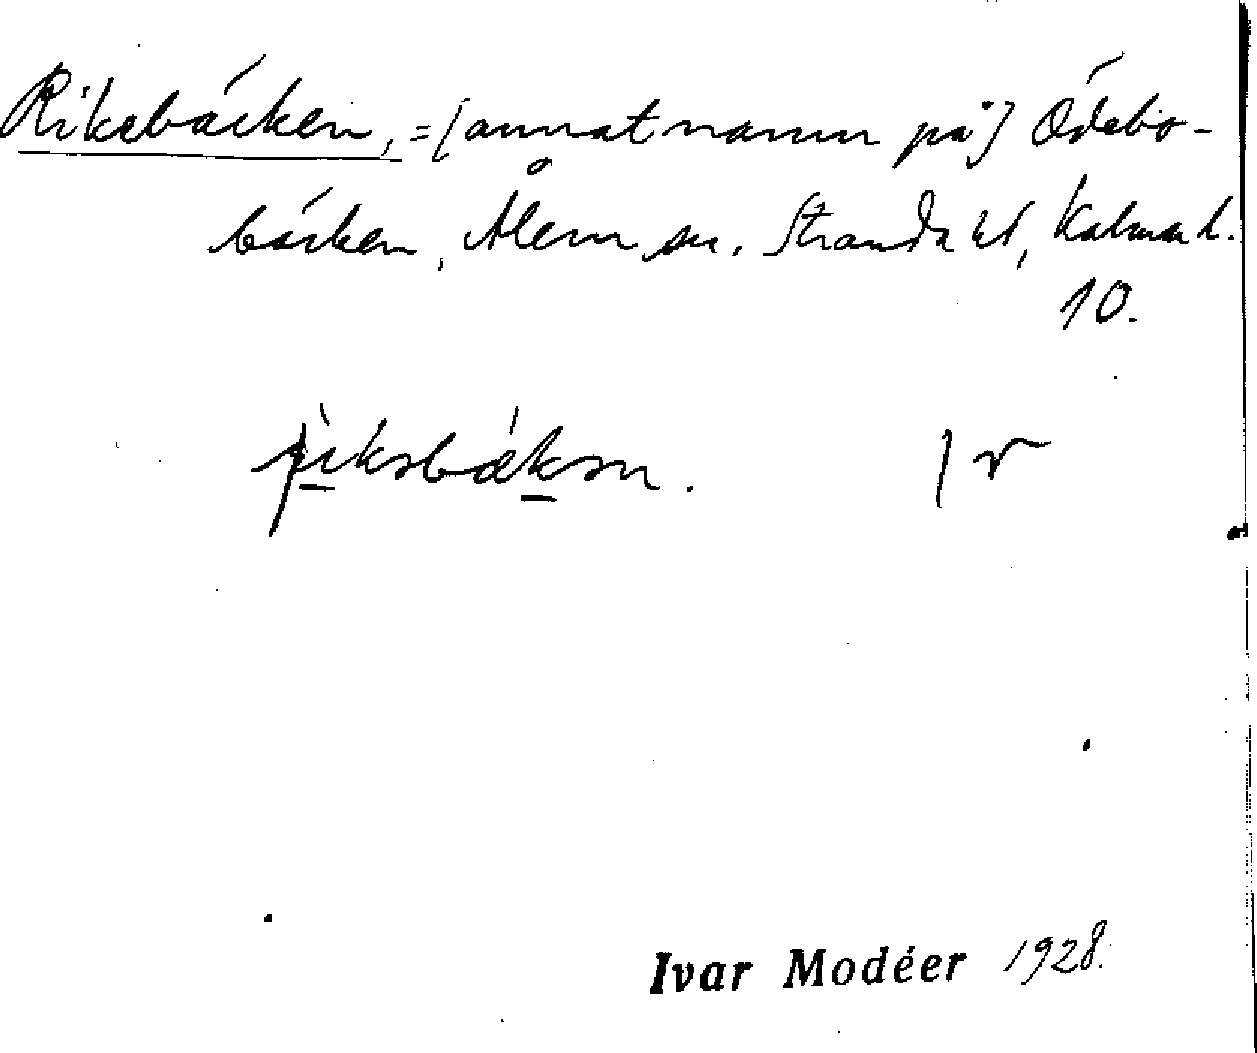 Riksbäcken, = [annat namn på] Ödebo-
bäcken, Ålem sn. Stranda hd, Kalmar l.
10.
riksbækən. | v
Ivar Modéer 1928.